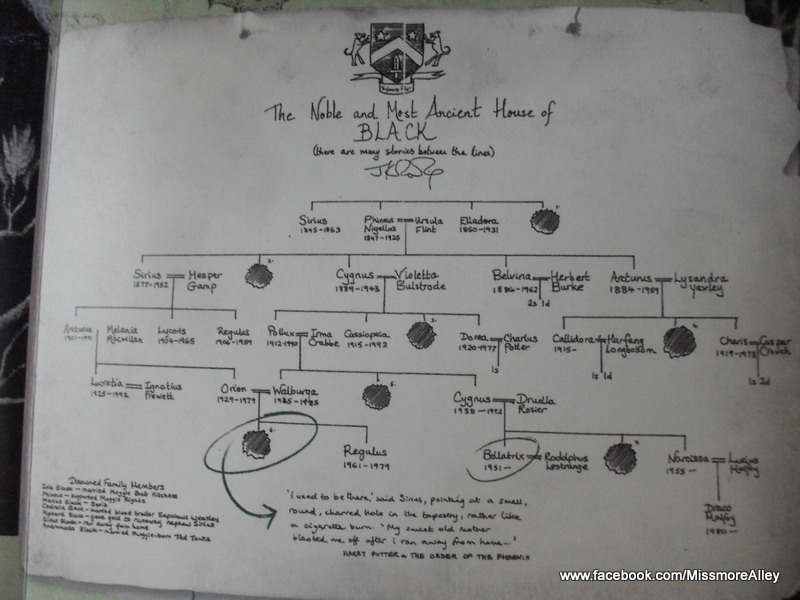 The Noble and Most Ancient House of
BLACK
(there are many stories between the lines)
1.
Sirius
1845-1853
Phineas
Nigellus
1847-1925
Ursula
Flint
Elladora
1850-1931
2.
Sirius
1877-1952
Hesper
Gamp
Cygnus
1889-1943
Violetta
Bulstrode
Belvina
1886-1962
Herbert
Burke
2s 1d
Arcturus
1884-1959
Lysandra
Yaxley
3.
4.
Arcturus
1901-1991
Melania
Macmillan
Lycoris
1904-1965
Regulus
1906-1959
Pollux
1912-1990
Irma
Crabbe
Cassiopeia
1915-1992
Dorea
1920-1977
Charlus
Potter
1s
Callidora
1915-
Harfang
Longbottom
1s 1d
Charis
1919-1973
Caspar
Crouch
1s 2d
Lucretia
1925-1992
Ignatius
Prewett
Orion
1929-1979
Walburga
1925-1985
5.
Cygnus
1938-1992
Druella
Rosier
6.
Regulus
1961-1979
Bellatrix
1951-
Rodolphus
Lestrange
Narcissa
1955-
Lucius
Malfoy
Draco
Malfoy
1980-
Disowned Family Members
Isla Black - married Muggle Bob Hitchens
Phineas - supported Muggle Rights
Marius Black - Squib
Cedrella Black - married blood traitor Septimus Weasley
Alphard Black - gave gold to runaway nephew Sirius
Sirius Black - ran away from home
Andromeda Black - married Muggle-born Ted Tonks
'I used to be there,' said Sirius, pointing at a small,
round, charred hole in the tapestry, rather like
a cigarette burn. 'My sweet old mother
blasted me off after I ran away from home...'
HARRY POTTER & THE ORDER OF THE PHOENIX
www.facebook.com/MissmoreAlley